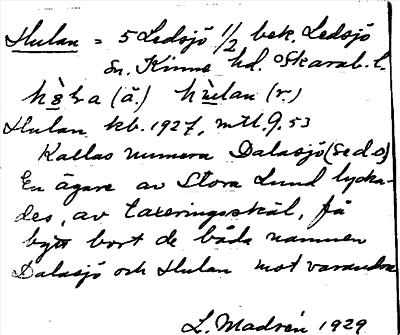 Hulan = 5 Ledsjö 1/2 bek. Ledsjö
sn. Kinne hd. Skarab. l.
(ä.) hùlan (r.)
Hulan kb. 1927, mtl. 9.53
Kallas numera Dalasjö (se d. o)
En ägare av Stora Lund lycka-
des, av taxeringsskäl, få
bytt bort de båda namnen
Dalasjö och Hulan mot varandra
L. Madrén 1929